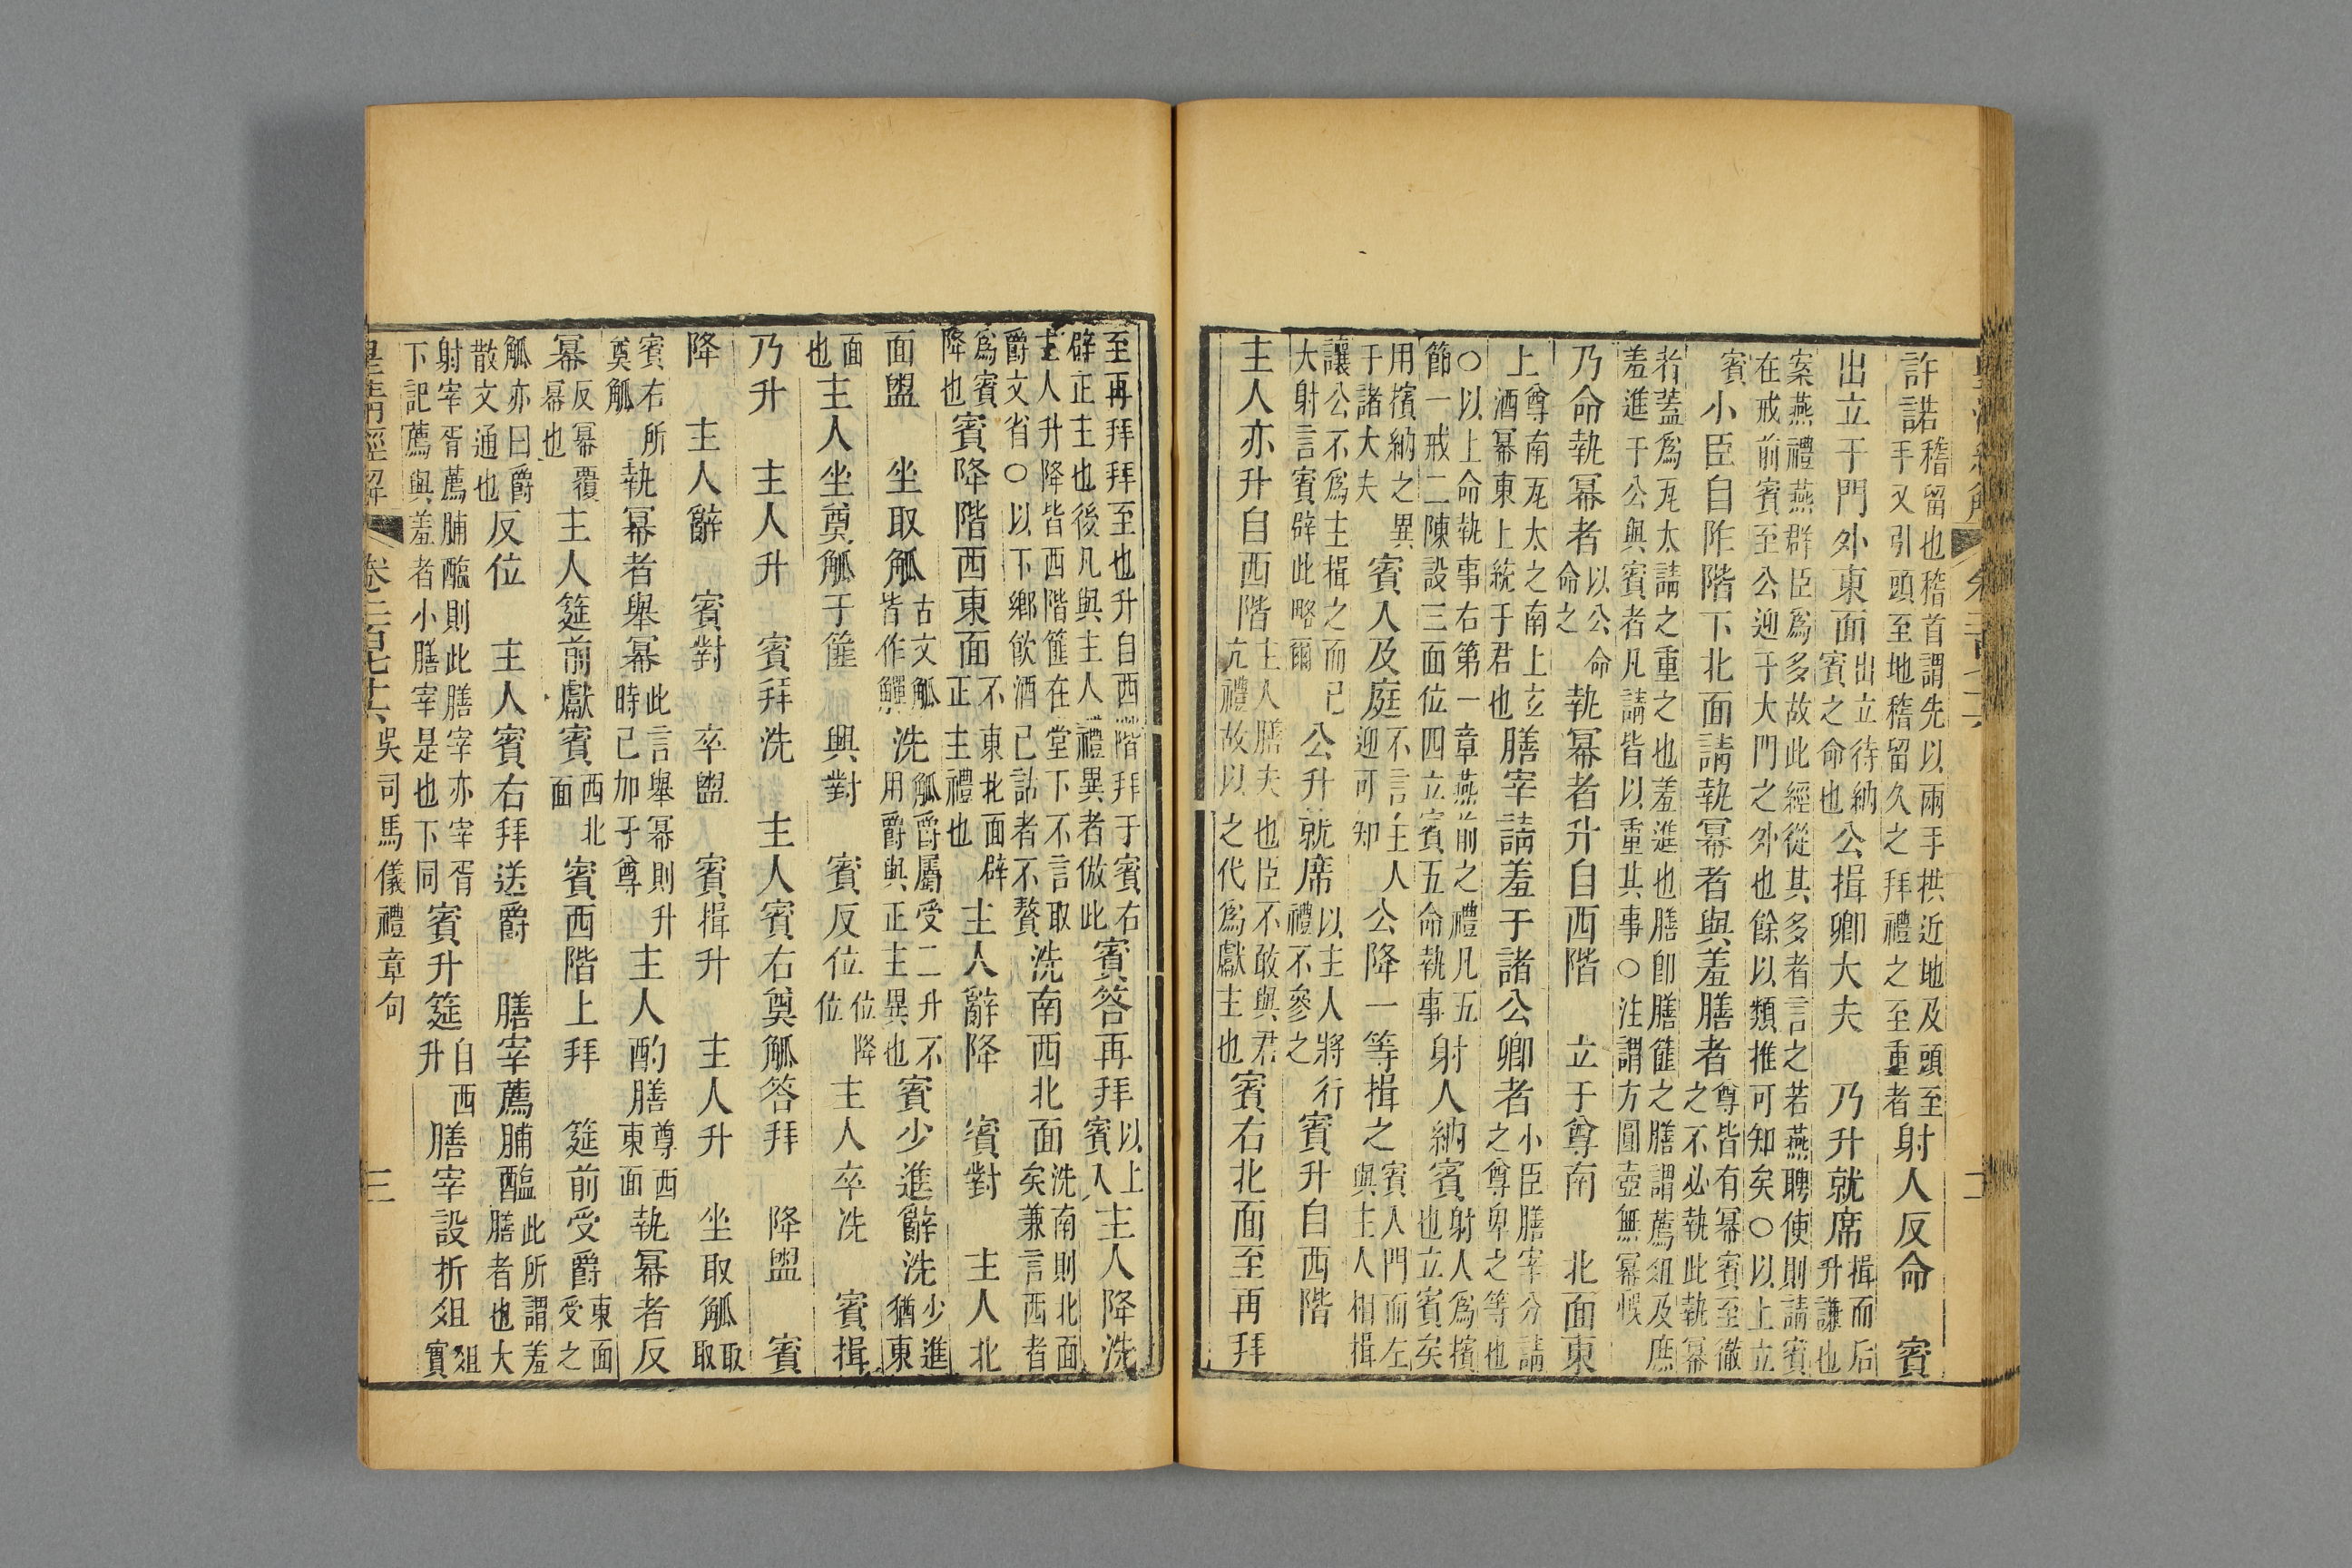 許諾稽留也稽首謂先以兩手拱近地及頭至手又引頭至地稽留久之拜禮之至重者射人反命　賓
出立于門外東面出立待納賓之命也公揖卿大夫　乃升就席揖而后升謙也
案燕禮燕群臣爲多故此經從其多者言之若燕聘使則請賓在戒前賓至公迎于大門之外也餘以類推可知矣○以上立
賓小臣自阼階下北面請執冪者與羞膳者尊皆有冪賓至徹之不必執此執冪
者蓋爲瓦太請之重之也羞進也膳卽膳篚之膳謂薦俎及庶羞進于公與賓者凡請皆以重其事○注謂方圓壺無冪悞
乃命執冪者以公命命之執冪者升自西階　立于尊南　北面東
上尊南瓦太之南上玄酒冪東上統于君也膳宰請羞于諸公卿者小臣膳宰分請之尊卑之等也
○以上命執事右第一章燕前之禮凡五節一戒二陳設三面位四立賓五命執事射人納賓射人爲擯也立賓矣
用擯納之異于諸大夫賓入及庭不言主人迎可知公降一等揖之賓入門而左與主人相揖
讓公不爲主揖之而已大射言賓辟此略爾公升就席以主人將行禮不參之賓升自西階
主人亦升自西階主人膳夫也臣不敢與君亢禮故以之代爲獻主也賓右北面至再拜
至再拜拜至也升自西階拜于賓右辟正主也後凡與主人禮異者倣此賓答再拜以上賓入主人降洗
主人升降皆西階篚在堂下不言取爵文省○以下鄉飲酒已詁者不贅洗南西北面洗南則北面矣兼言西者
爲賓降也賓降階西東面不東北面辟正主禮也主人辭降　賓對　主人北
面盥　坐取觚古文觚皆作觶洗觚爵屬受二升不用爵與正主異也賓少進辭洗少進猶東
面也主人坐奠觚于篚　興對　賓反位位降位主人卒洗　賓揖
乃升　主人升　賓拜洗　主人賓右奠觚答拜　降盥　賓
降　主人辭　賓對　卒盥　賓揖升　主人升　坐取觚取取
賓右所奠觚執冪者舉冪此言舉冪則升時已加于尊主人酌膳尊西東面執冪者反
冪反冪覆冪也主人筵前獻賓西北面賓西階上拜　筵前受爵東面受之
觚亦曰爵散文通也反位　主人賓右拜送爵　膳宰薦脯醢此所謂羞膳者也大
射宰胥薦脯醢則此膳宰亦宰胥下記薦與羞者小膳宰是也下同賓升筵自西升膳宰設折俎俎實
皇淸經解　卷二百七十六　吳司馬儀禮章句　三